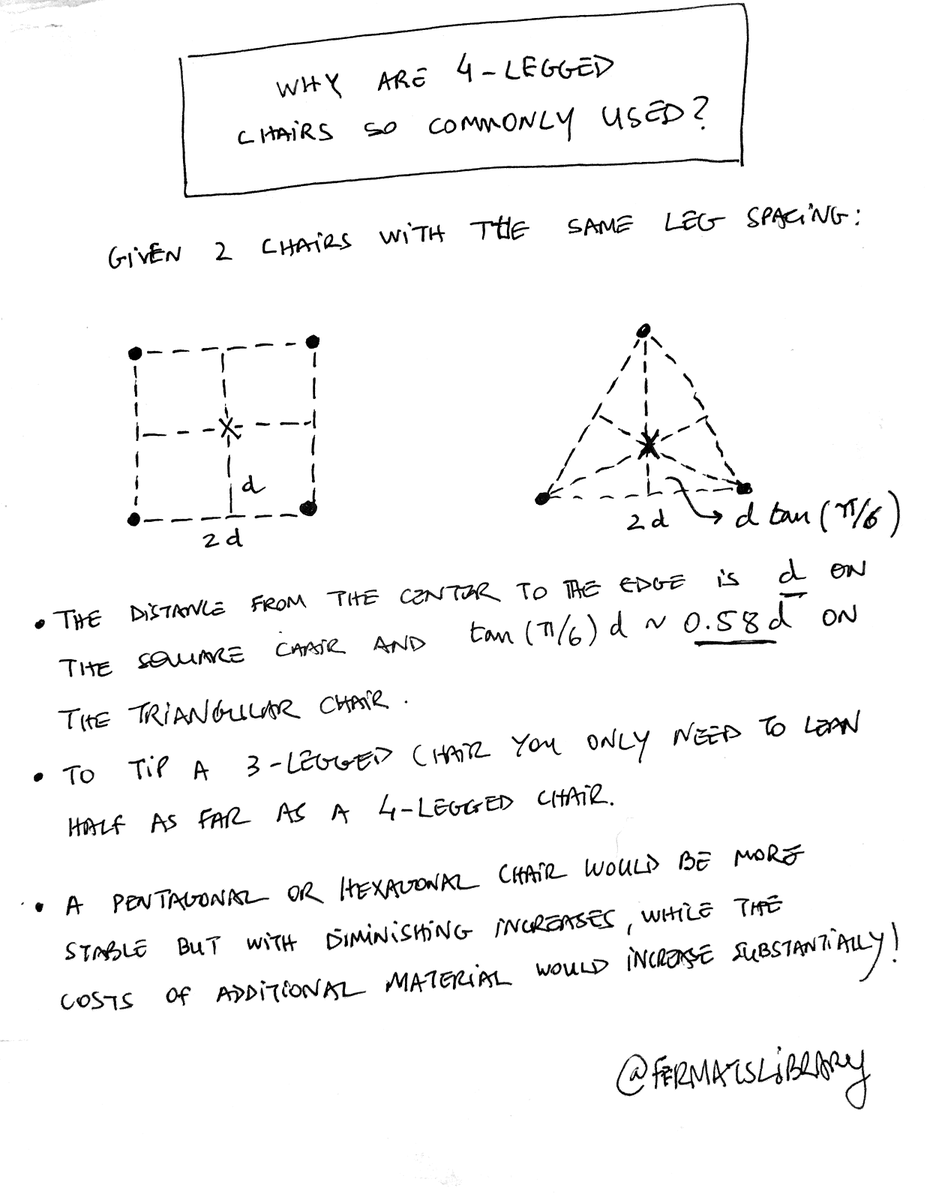 WHY ARE 4-LEGGED
CHAIRS SO COMMONLY USED?
GIVEN 2 CHAIRS WITH THE SAME LEG SPACING:
d
2d
2d
d tan(π/6)
• THE DISTANCE FROM THE CENTER TO THE EDGE IS d ON
THE SQUARE CHAIR AND tan(π/6)d ~ 0.58d ON
THE TRIANGULAR CHAIR.
• TO TIP A 3-LEGGED CHAIR YOU ONLY NEED TO LEAN
HALF AS FAR AS A 4-LEGGED CHAIR.
• A PENTAGONAL OR HEXAGONAL CHAIR WOULD BE MORE
STABLE BUT WITH DIMINISHING INCREASES, WHILE THE
COSTS OF ADDITIONAL MATERIAL WOULD INCREASE SUBSTANTIALLY!
@FERMATSLIBRARY